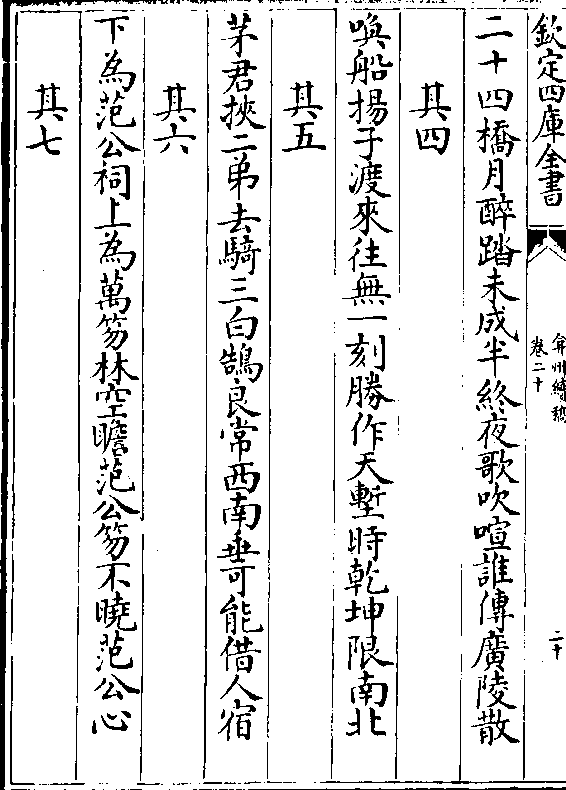 欽定四庫全書
弇州續稿
卷二十
二十
二十四橋月醉踏未成半終夜歌吹喧誰傳廣陵散
其四
喚船揚子渡來往無一刻勝作天塹時乾坤限南北
其五
茅君挾二弟去騎三白鵠良常西南垂可能借人宿
其六
下為范公祠上為萬笏林空瞻范公笏不曉范公心
其七